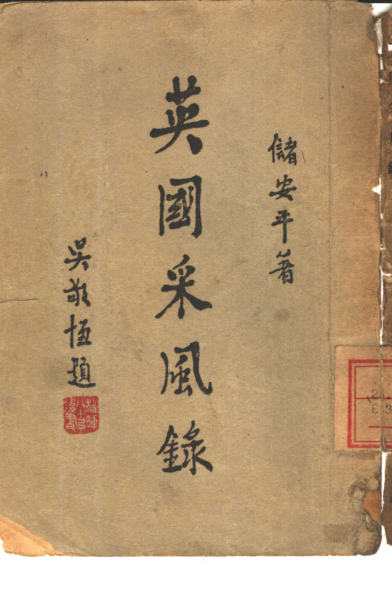 儲安平著
英國采風錄
吳敬恆題